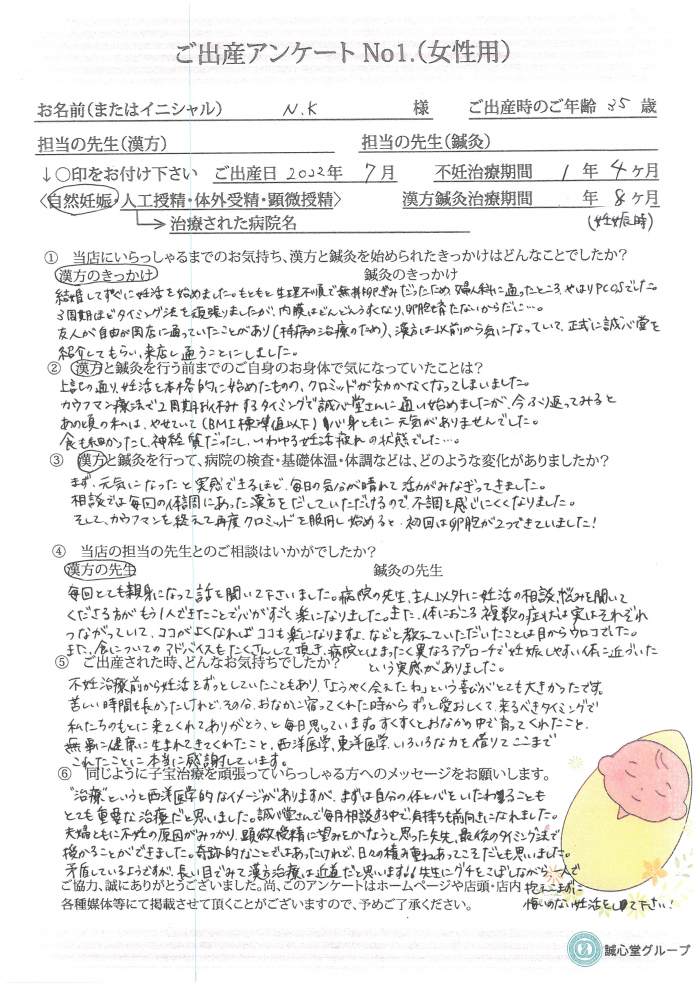 ご出産アンケート No1.（女性用）
お名前（またはイニシャル） N.K 様 ご出産時のご年齢 35 歳
担当の先生（漢方） 担当の先生（鍼灸）
↓○印をお付け下さい ご出産日 2022年 7月 不妊治療期間 1 年 4 ヶ月
〈自然妊娠・人工授精・体外受精・顕微授精〉 漢方鍼灸治療期間 年 8 ヶ月
治療された病院名 （妊娠時）
① 当店にいらっしゃるまでのお気持ち、漢方と鍼灸を始められたきっかけはどんなことでしたか？
漢方のきっかけ 鍼灸のきっかけ
結婚してすぐに妊活を始めました。もともと生理不順で無排卵ぎみだったため、婦人科に通ったところ、やはりPCOSでした。
3周期ほどタイミング法を頑張りましたが、内膜はどんどんうすくなり、卵胞も育たないからだに…。
友人が自由が丘店に通っていたことがあり（持病の治療のため）、漢方は以前から気になっていて、正式に誠心堂を
紹介してもらい、来店し通うことにしました。
② 漢方と鍼灸を行う前までのご自身のお身体で気になっていたことは？
上記の通り、妊活を本格的に始めたものの、クロミッドが効かなくなってしまいました。
カウフマン療法で2周期お休みするタイミングで誠心堂さんに通い始めましたが、今ふり返ってみると
あの頃の私は、やせていて（BMI標準値以下）心身ともに元気がありませんでした。
食も細かったし、神経質だったし、いわゆる妊活疲れの状態でした…。
③ 漢方と鍼灸を行って、病院の検査・基礎体温・体調などは、どのような変化がありましたか？
まず、元気になったと実感できるほど、毎日の気分が晴れて活力がみなぎってきました。
相談では毎回の体調にあった漢方をだしていただけるので不調を感じにくくなりました。
そして、カウフマンを終えて再度クロミッドを服用し始めると、初回は卵胞が2つできていました！
④ 当店の担当の先生とのご相談はいかがでしたか？
漢方の先生 鍼灸の先生
毎回とても親身になって話を聞いて下さいました。病院の先生、主人以外に妊活の相談、悩みを聞いて
くださる方がもう1人できたことで心がすごく楽になりました。また、体におこる複数の症状は実はそれぞれ
つながっていて、ココがよくなればココも楽になりますよ、などと教えていただいたことは目からウロコでした。
また、食についてのアドバイスもたくさんして頂き、病院とはまったく異なるアプローチで妊娠しやすい体に近づいた
という実感がありました。
⑤ ご出産された時、どんなお気持ちでしたか？
不妊治療前から妊活をずっとしていたこともあり、「ようやく会えたね」という喜びがとても大きかったです。
苦しい時間も長かったけれど、その分、おなかに宿ってくれた時からずっと愛おしくて、来るべきタイミングで
私たちのもとに来てくれてありがとう、と毎日思っています。すくすくとおなかの中で育ってくれたこと、
無事に健康に生まれてきてくれたこと、西洋医学、東洋医学、いろいろな力を借りてここまで
これたことに本当に感謝しています。
⑥ 同じように子宝治療を頑張っていらっしゃる方へのメッセージをお願いします。
“治療”というと西洋医学的なイメージがありますが、まずは自分の体と心をいたわることも
とても重要な治療だと思いました。誠心堂さんで毎月相談する中で気持ちも前向きになれました。
夫婦ともに不妊の原因がみつかり、顕微授精に望みをかけようと思った矢先、最後のタイミング法で
授かることができました。奇跡的なことではあったけれど、日々の積み重ねあってこそだとも思いました。
矛盾しているようですが、長い目でみて漢方治療は近道だと思います！先生にグチをこぼしながら、一人で
抱えこまずに
悔いのない妊活をして下さい！
ご協力、誠にありがとうございました。尚、このアンケートはホームページや店頭・店内
各種媒体等にて掲載させて頂くことがございますので、予めご了承ください。
誠心堂グループ